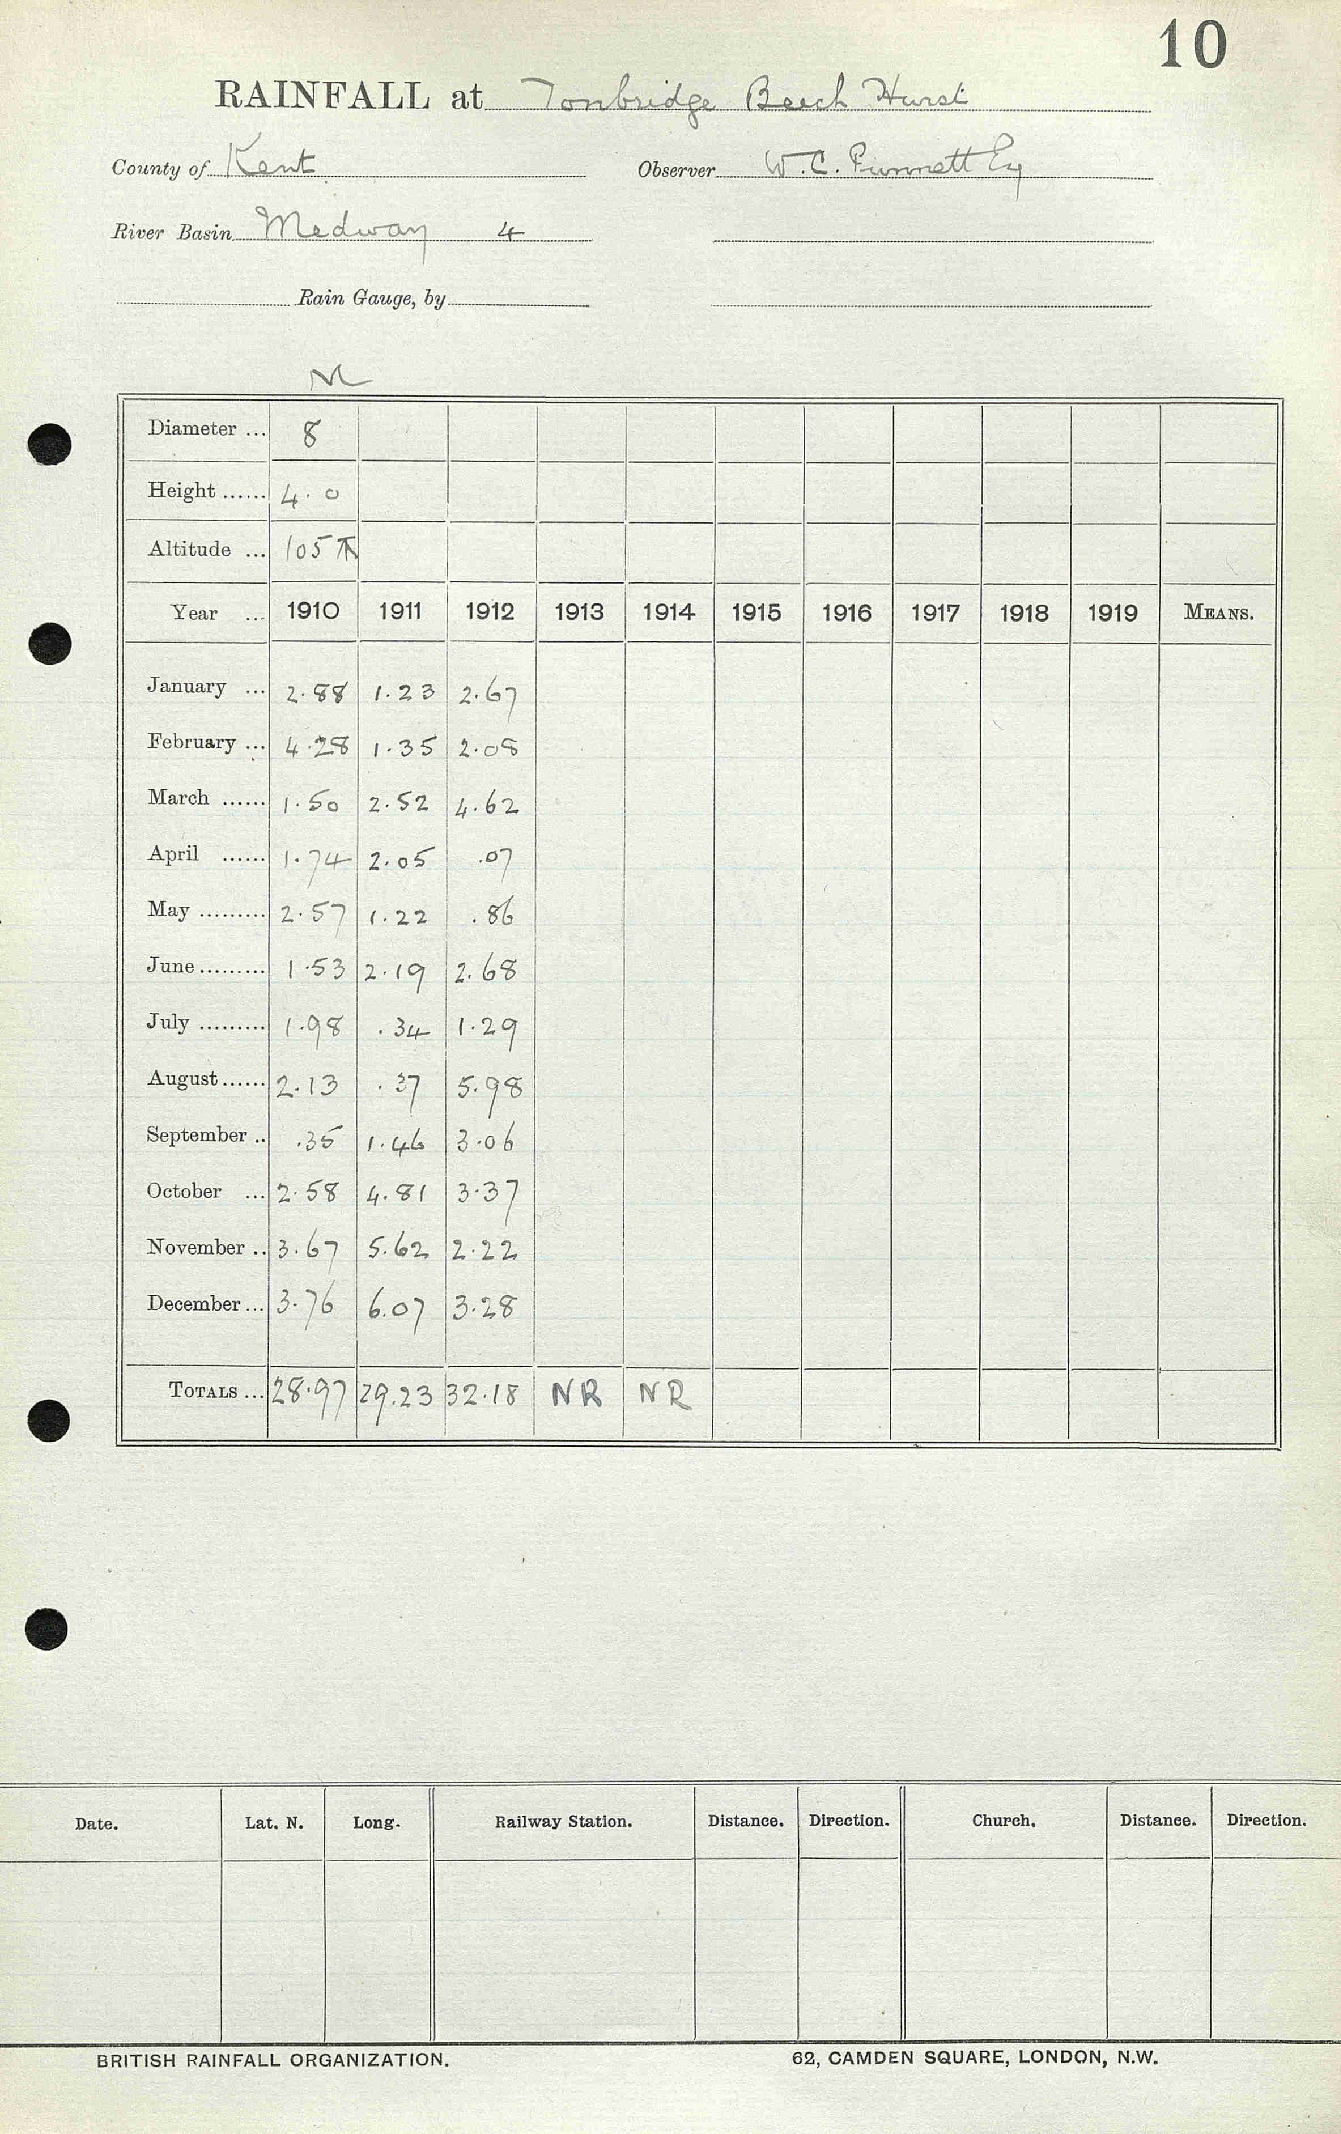 10
RAINFALL at Tonbridge Beech Hurst
County of Kent Observer W. C. Punnett Esq
River Basin Medway 4
Rain Gauge, by
M
Diameter ... 8
Height ...... 4.0
Altitude ... 105
Year ... 1910 1911 1912 1913 1914 1915 1916 1917 1918 1919 MEANS.
January ... 2.88 1.23 2.67
February ... 4.28 1.35 2.08
March ...... 1.50 2.52 4.62
April ...... 1.74 2.05 .07
May ......... 2.57 1.22 .86
June ......... 1.53 2.19 2.68
July ......... 1.98 .34 1.29
August ...... 2.13 .37 5.98
September .. .35 1.46 3.06
October ... 2.58 4.81 3.37
November .. 3.67 5.62 2.22
December ... 3.76 6.07 3.28
TOTALS ... 28.97 29.23 32.18 NR NR
Date. Lat. N. Long. Railway Station. Distance. Direction. Church. Distance. Direction.
BRITISH RAINFALL ORGANIZATION. 62, CAMDEN SQUARE, LONDON, N.W.